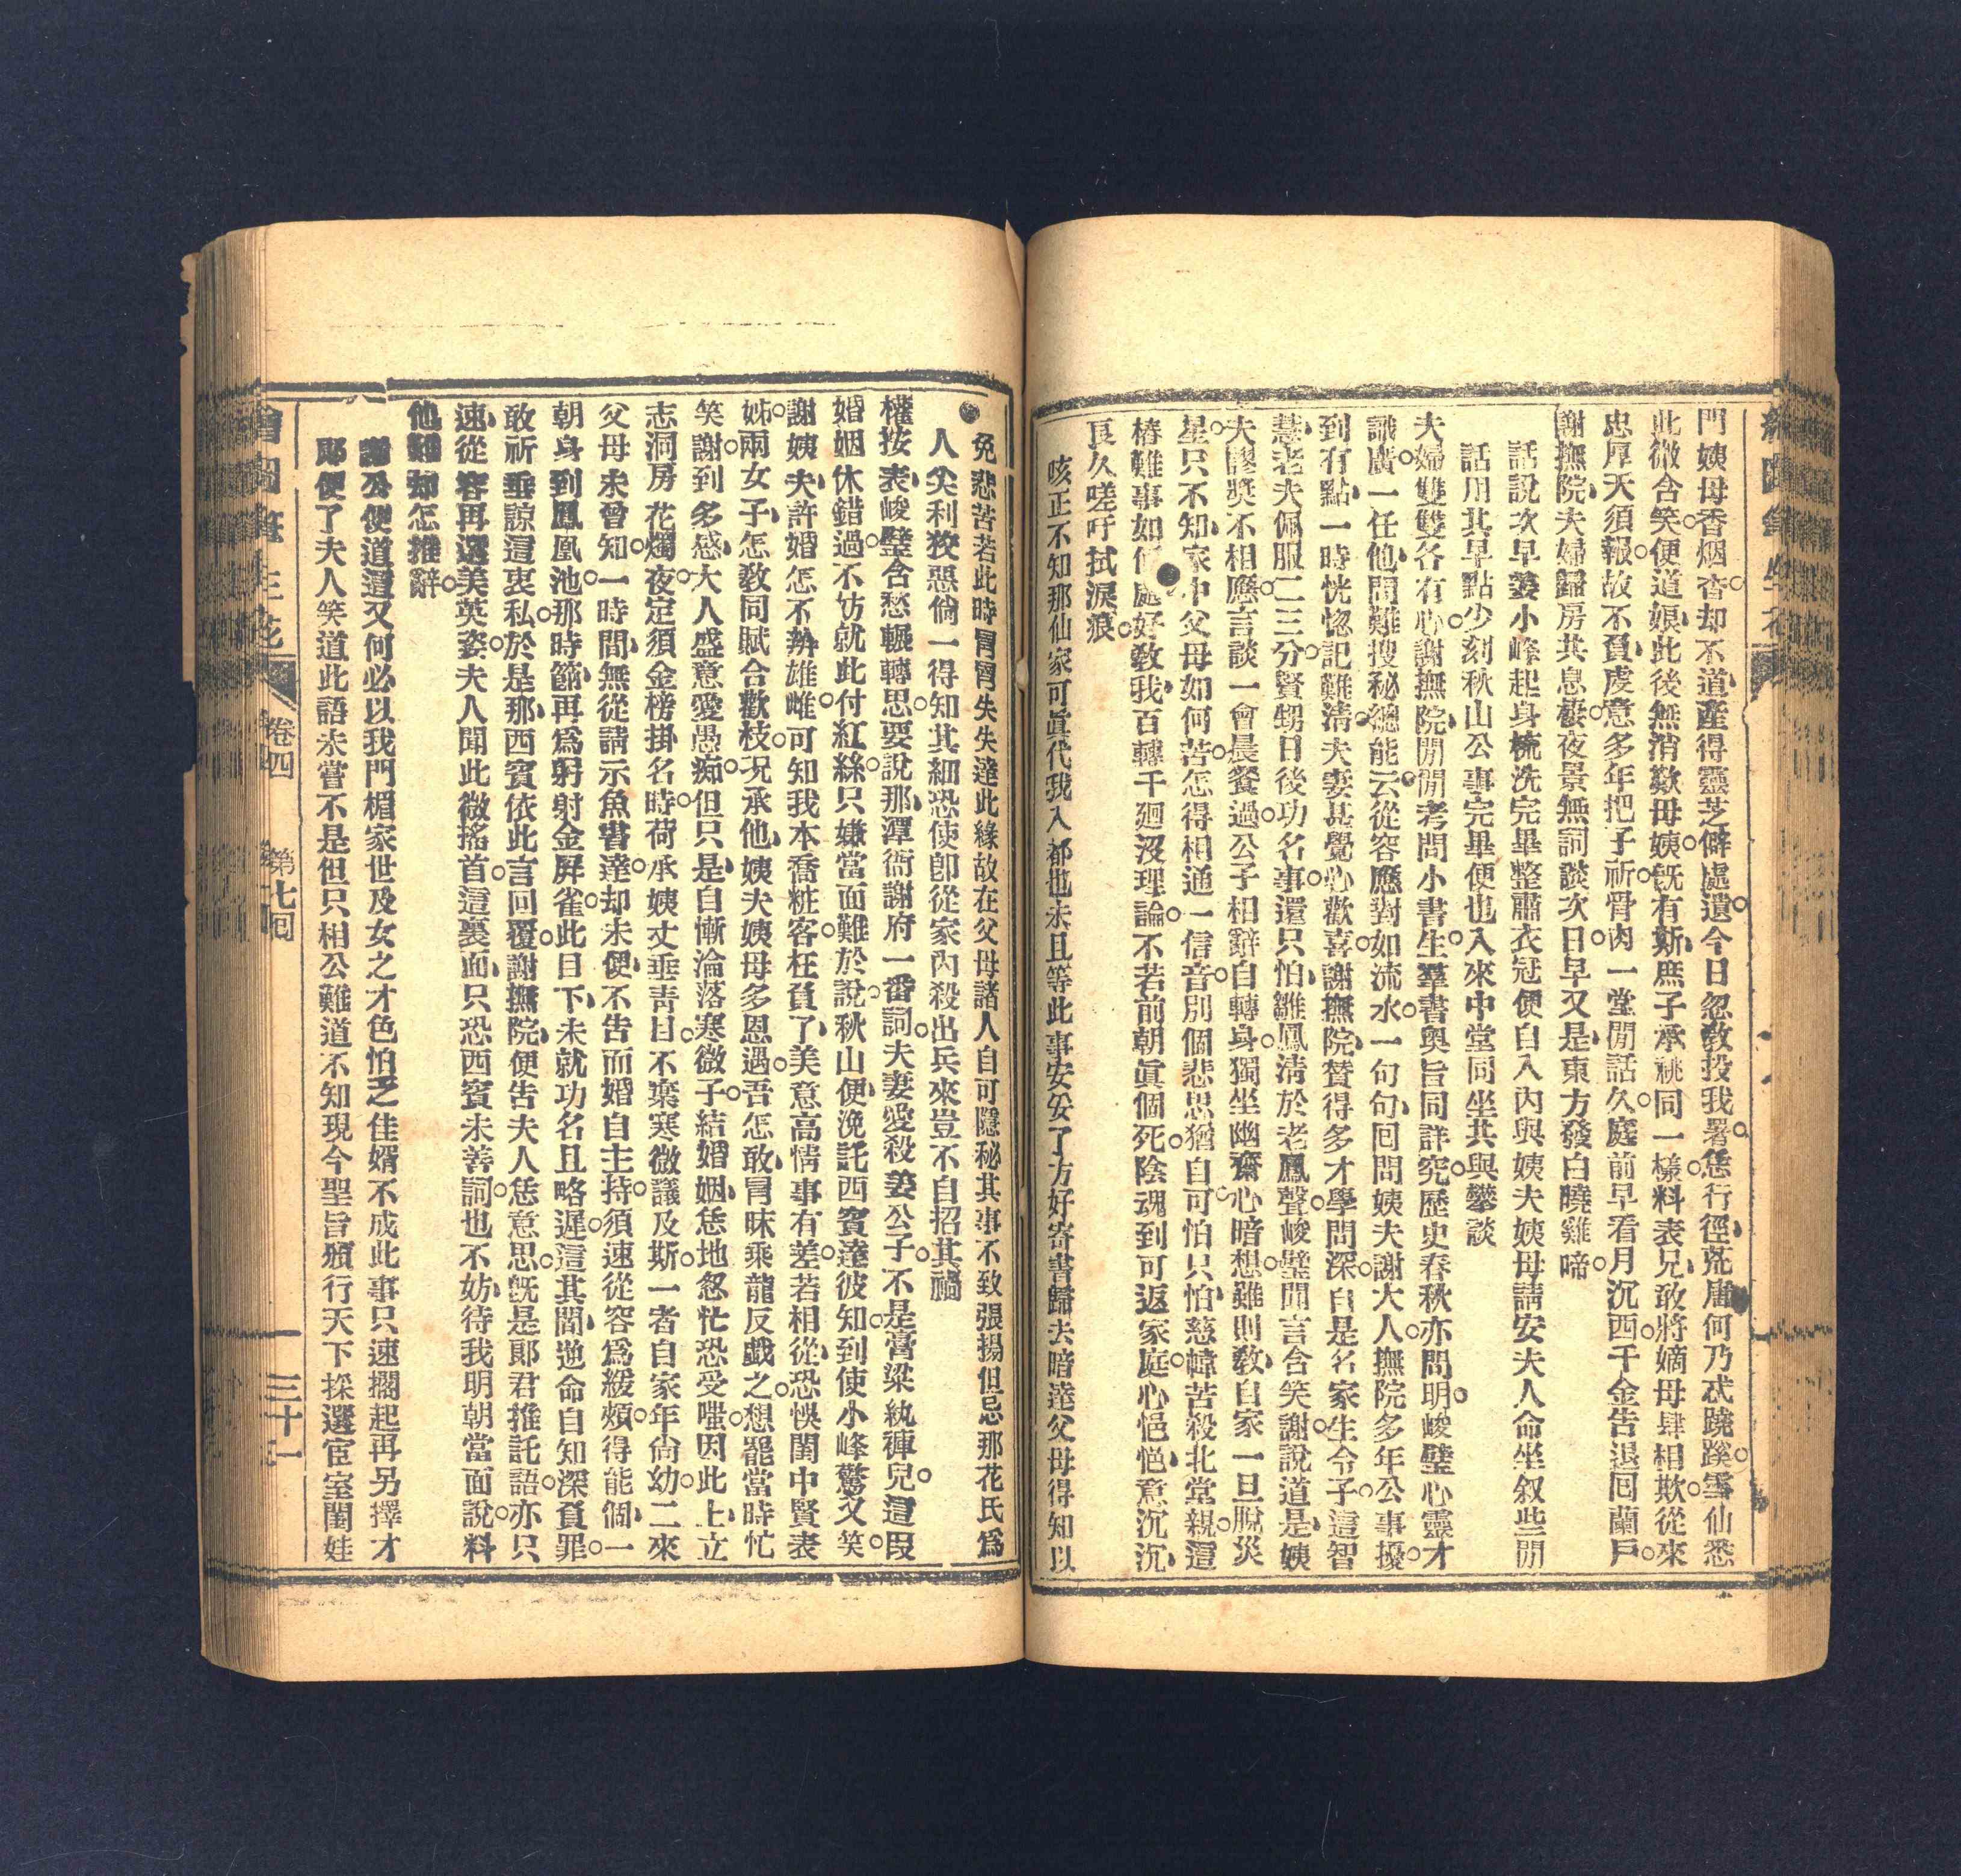 門姨母香烟杳却不道產得靈芝僻處遺今日忽教投我署恁行徑荒唐何乃忒蹺蹊雪仙悉
此微含笑便道娘此後無消歎母姨旣有斯庶子承祧同一樣料表兄敢將嫡母肆相欺從來
忠厚天須報故不負虔意多年把子祈骨肉一堂閒話久庭前早看月沉西千金告退回蘭戶
謝撫院夫婦歸房共息棲夜景無詞談次日早又是東方發白曉雞啼
話說次早姜小峰起身梳洗完畢整肅衣冠便自入內與姨夫姨母請安夫人命坐叙些閒
話用其早點少刻秋山公事完畢便也入來中堂同坐共與攀談
夫婦雙雙各有心謝撫院閒閒考問小書生羣書奧旨同詳究歷史春秋亦問明峻璧心靈才
識廣一任他問難搜秘總能云從容應對如流水一句句回問姨夫謝大人撫院多年公事擾
到有點一時恍惚記難淸夫妻甚覺心歡喜謝撫院贊得多才學問深自是名家生令子這智
慧老夫佩服二三分賢甥日後功名事還只怕雛鳳清於老鳳聲峻璧聞言含笑謝說道是姨
夫謬獎不相應言談一會晨餐過公子相辭自轉身獨坐幽齋心暗想雖則教自家一旦脫災
星只不知家中父母如何苦怎得相通一信音別個悲思猶自可怕只怕慈幃苦殺北堂親這
椿難事如何處好教我百轉千廻沒理論不若前朝眞個死陰魂到可返家庭心悒悒意沉沉
良久嗟吁拭淚痕
咳正不知那仙家可眞代我入都也未且等此事安妥了方好寄書歸去暗達父母得知以
免悲苦若此時冐冐失失達此緣故在父母諸人自可隱秘其事不致張揚但忌那花氏爲
人尖利狡惡倘一得知其細恐使卽從家內殺出兵來豈不自招其禍
權按表峻璧含愁輾轉思要說那潭衙謝府一番詞夫妻愛殺姜公子不是膏粱紈褲兒這段
婚姻休錯過不妨就此付紅絲只嫌當面難於說秋山便浼託西賓達彼知到使小峰驚又笑
謝姨夫許婚怎不辨雄雌可知我本喬粧客枉負了美意高情事有差若相從恐悞閨中賢表
姊兩女子怎教同賦合歡枝况承他姨夫姨母多恩遇吾怎敢冐昧乘龍反戯之想罷當時忙
笑謝到多感大人盛意愛愚痴但只是自慚淪落寒微子結婚姻恁地忽忙恐受嗤因此上立
志洞房花燭夜定須金榜掛名時荷承姨丈垂靑目不棄寒微議及斯一者自家年尙幼二來
父母未曾知一時間無從請示魚書達却未便不告而婚自主持須速從容爲緩頰得能個一
朝身到鳳凰池那時節再爲射射金屏雀此目下未就功名且略遲這其間逆命自知深負罪
敢祈垂諒這衷私於是那西賓依此言回覆謝撫院便告夫人恁意思旣是郞君推託語亦只
速從容再選美英姿夫人聞此微搖首這裏面只恐西賓未善詞也不妨待我明朝當面說料
他難却怎推辭
謝公便道這又何必以我門楣家世及女之才色怕乏佳婿不成此事只速擱起再另擇才
郞便了夫人笑道此語未嘗不是但只相公難道不知現今聖旨頒行天下採選宦室閨娃
卷四 第七回
三十一